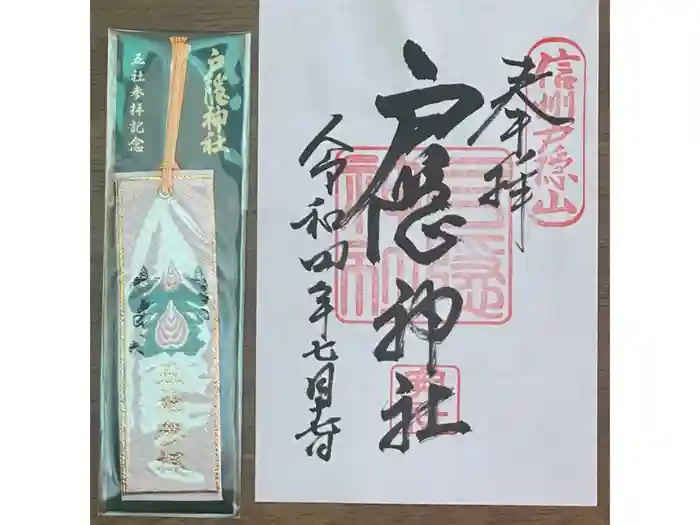 戸隠神社
五社参拝記念
五社参拝
信州戸隠山
奉拝
戸隠神社
令和四年七月